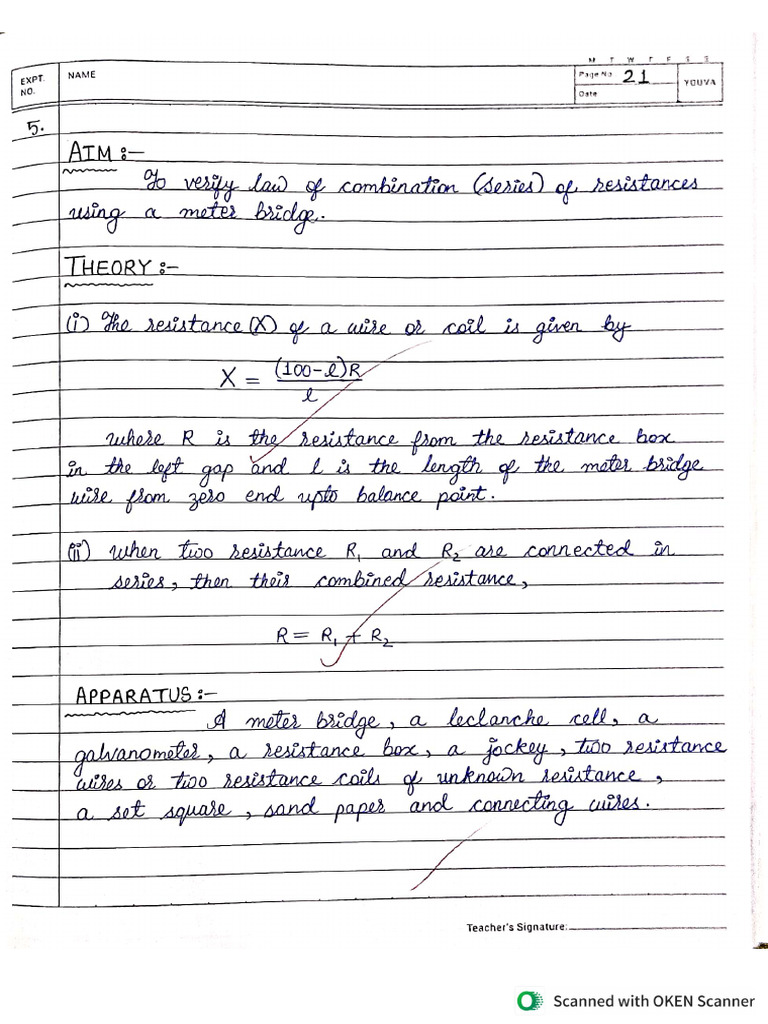 M T W T F S S
EXPT. NO.
NAME
Page No. 21
YOUVA
Date
5.
AIM :-
To verify law of combination (series) of resistances
using a meter bridge.
THEORY :-
(i) The resistance (X) of a wire or coil is given by
X = (100-l)R / l
where R is the resistance from the resistance box
in the left gap and l is the length of the meter bridge
wire from zero end upto balance point.
(ii) when two resistance R₁ and R₂ are connected in
series, then their combined resistance,
R = R₁ + R₂
APPARATUS :-
A meter bridge, a leclanche cell, a
galvanometer, a resistance box, a jockey, two resistance
wires or two resistance coils of unknown resistance,
a set square, sand paper and connecting wires.
Teacher's Signature:
Scanned with OKEN Scanner